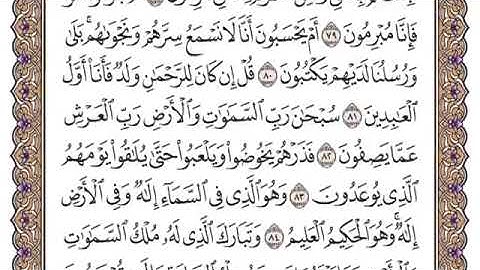 فَإِنَّا مُبْرِمُونَ ٧٩ أَمْ يَحْسَبُونَ أَنَّا لَا نَسْمَعُ سِرَّهُمْ وَنَجْوَىٰهُم ۚ بَلَىٰ
وَرُسُلُنَا لَدَيْهِمْ يَكْتُبُونَ ٨٠ قُلْ إِن كَانَ لِلرَّحْمَٰنِ وَلَدٌ فَأَنَا۠ أَوَّلُ
الْعَٰبِدِينَ ٨١ سُبْحَٰنَ رَبِّ السَّمَٰوَٰتِ وَالْأَرْضِ رَبِّ الْعَرْشِ
عَمَّا يَصِفُونَ ٨٢ فَذَرْهُمْ يَخُوضُوا۟ وَيَلْعَبُوا۟ حَتَّىٰ يُلَٰقُوا۟ يَوْمَهُمُ
الَّذِى يُوعَدُونَ ٨٣ وَهُوَ الَّذِى فِى السَّمَآءِ إِلَٰهٌ وَفِى الْأَرْضِ
إِلَٰهٌ ۚ وَهُوَ الْحَكِيمُ الْعَلِيمُ ٨٤ وَتَبَارَكَ الَّذِى لَهُۥ مُلْكُ السَّمَٰوَٰتِ